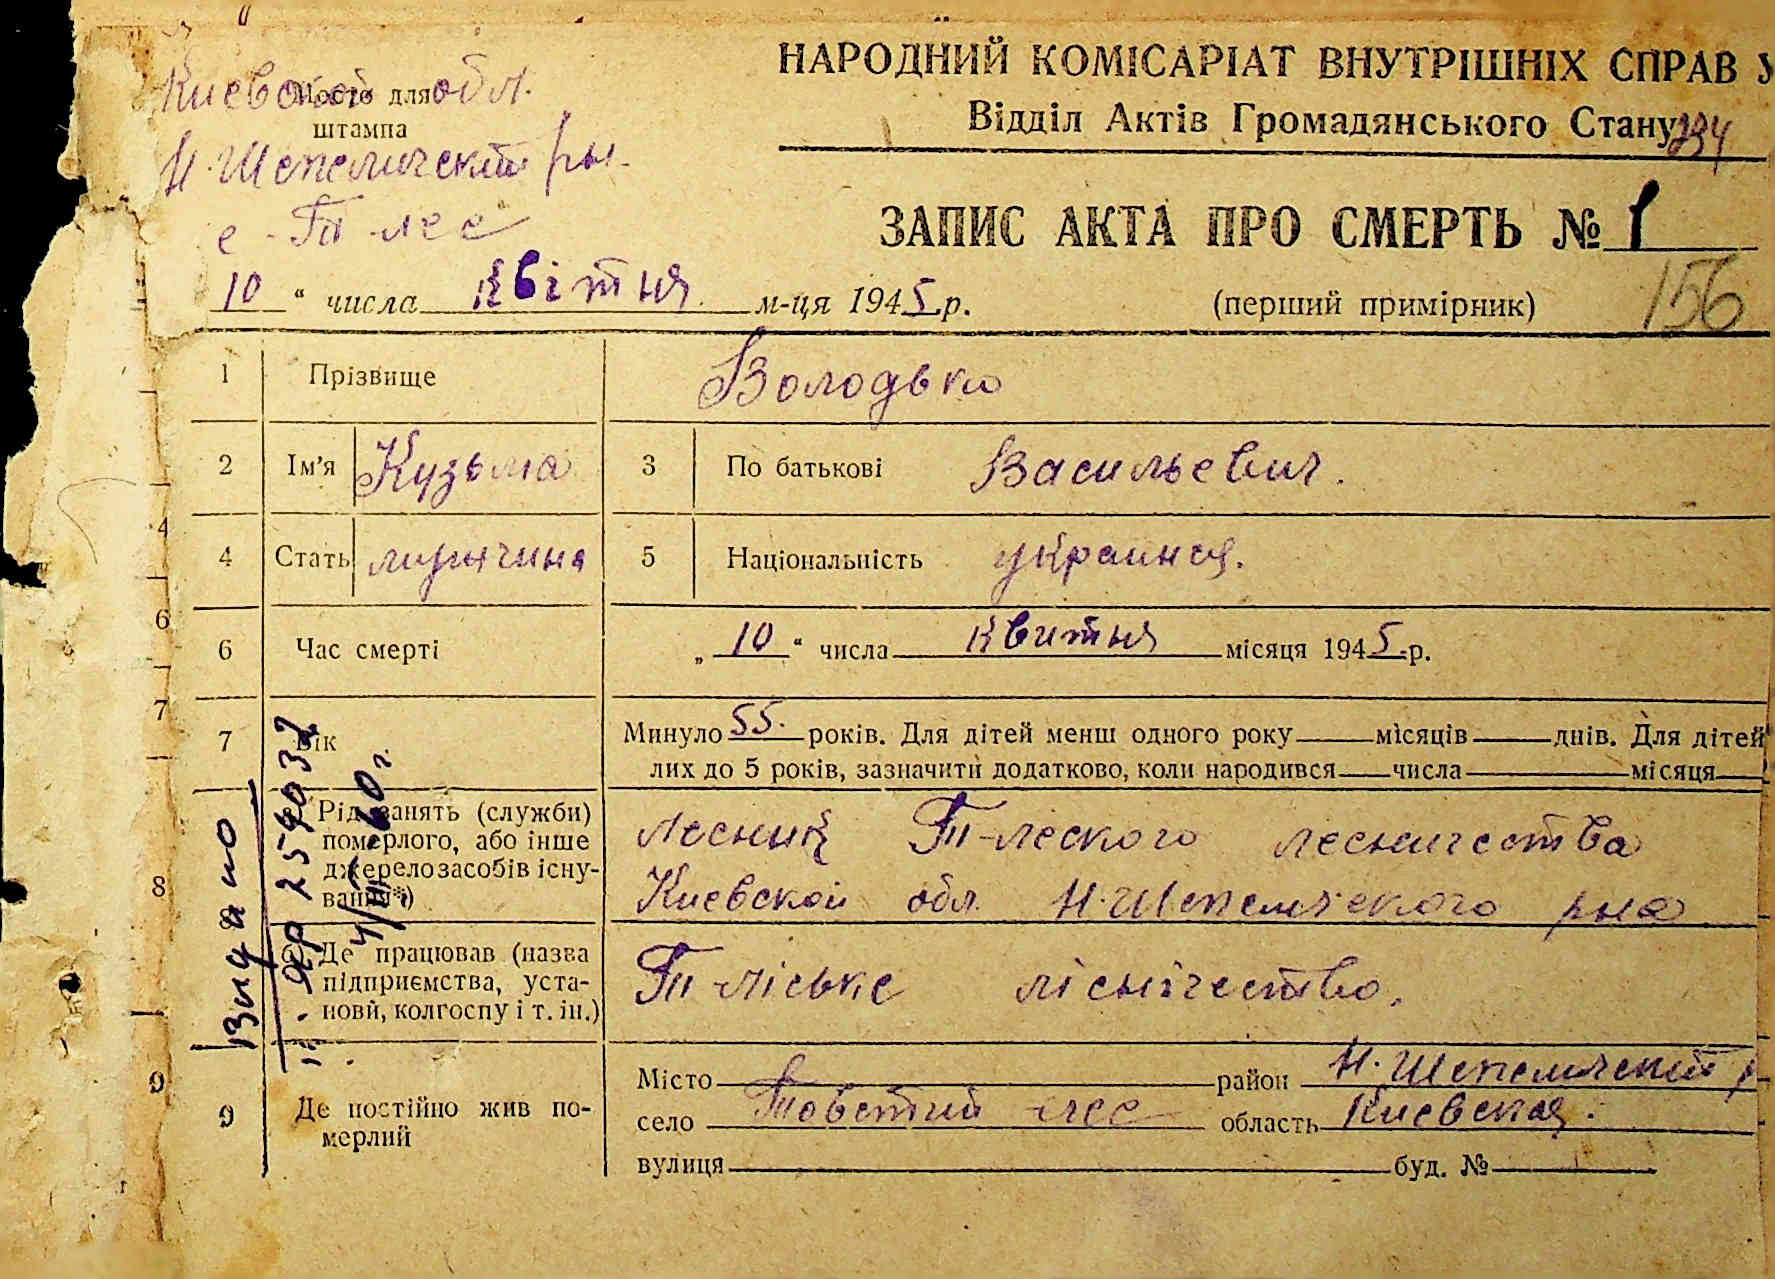 Киевской обл.
Місце для
штампа
Н. Шепеличский р-н.
с - Т-лес
НАРОДНИЙ КОМІСАРІАТ ВНУТРІШНІХ СПРАВ У
Відділ Актів Громадянського Стану
234
ЗАПИС АКТА ПРО СМЕРТЬ № 1
10 “ числа квітня м-ця 1945 р.
(перший примірник) 156
1 Прізвище Володько
2 Ім’я Кузьма 3 По батькові Васильевич.
4 Стать мужчина 5 Національність украинец.
6 Час смерті „ 10 “ числа квитня місяця 1945 р.
7 Вік Минуло 55. років. Для дітей менш одного року місяців днів. Для дітей
лих до 5 років, зазначити додатково, коли народився числа місяця
8 Рід занять (служби)
померлого, або інше
джерело засобів існу-
вання*)
Лесник Т-леского лесничества
Киевской обл. Н. Шепеличского р-на
Де працював (назва
підприємства, уста-
нови, колгоспу і т. ін.)
Т-ліське лісничество.
9 Де постійно жив по-
мерлий
Місто район Н. Шепеличский р
село Товстий лес область Киевская.
вулиця буд. №
Видано
4
6
7
8
9